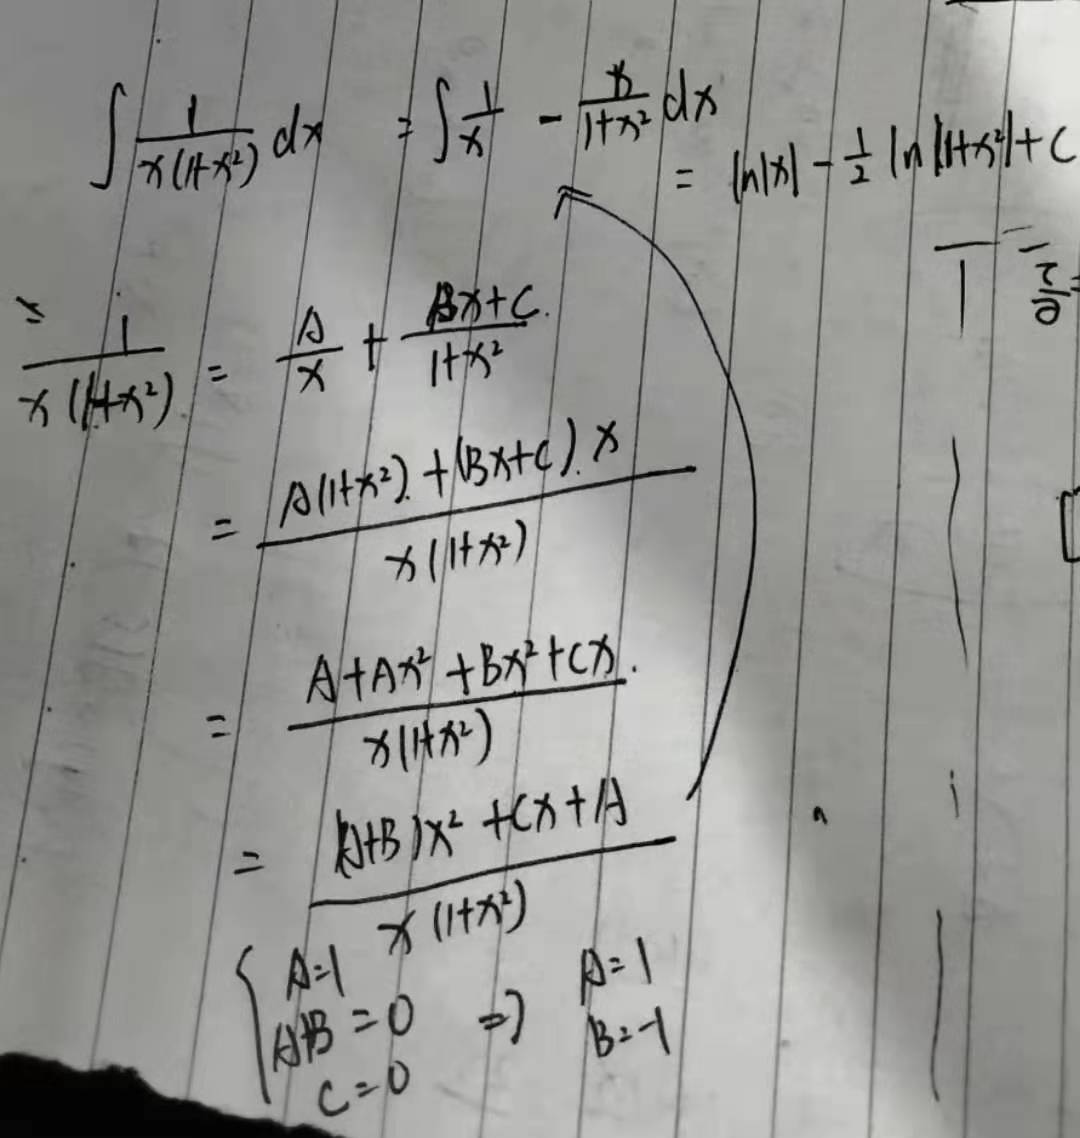 ∫ 1/(x(1+x²)) dx = ∫ 1/x - x/(1+x²) dx
= ln|x| - 1/2 ln|1+x²| + C
1/(x(1+x²)) = A/x + (Bx+C)/(1+x²)
= (A(1+x²)+(Bx+C).x)/(x(1+x²))
= (A+Ax²+Bx²+Cx)/(x(1+x²))
= ((A+B)x²+Cx+A)/(x(1+x²))
{ A=1
A+B=0 => A=1
C=0 B=-1